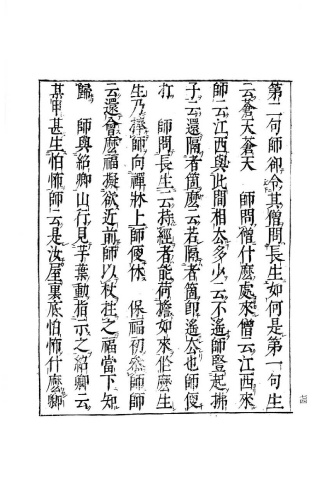 第二句師卻令其僧問長生如何是第一句生
云蒼天蒼天　師問僧什麼處來僧云江西來
師云江西與此間相去多少云不遙師豎起拂
子云還隔者箇麼云若隔者箇卽遙去也師便
打　師問長生云持經者能荷擔如來作麼生
生乃捧師向禪牀上師便休　保福初參師師
云還會麼福擬欲近前師以杖拄之福當下知
歸　師與紹卿山行見芋葉動指示之紹卿云
某甲甚生怕怖師云是汝屋裏底怕怖什麼卿